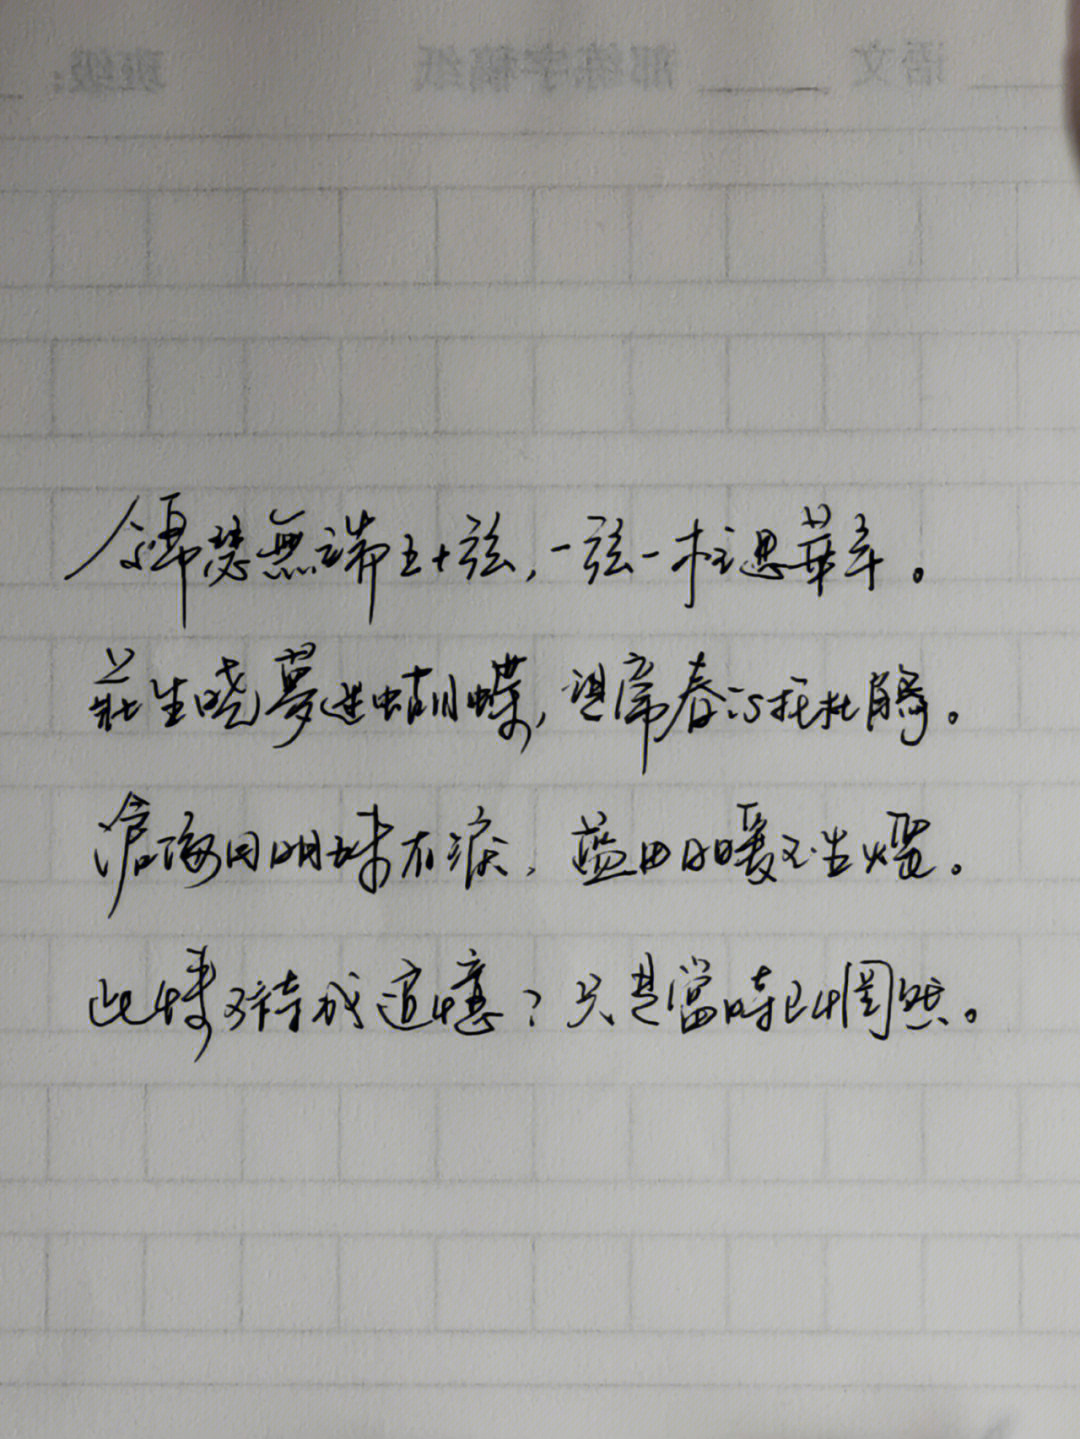 班级： 部练字稿纸 语文
錦瑟無端五十弦，一弦一柱思華年。
莊生晓夢迷蝴蝶，望帝春心托杜鹃。
滄海月明珠有淚，蓝田日暖玉生煙。
此情可待成追憶？只是當時已惘然。